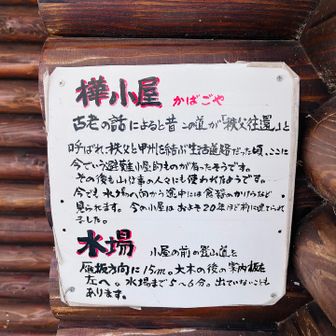 樺小屋 かばごや
古老の話によると昔 この道が「秩父往還」と
呼ばれ秩父と甲州を結ぶ生活道路だった頃、ここに
今でいう避難小屋的ものが有ったそうです。
その後も山仕事の人々にも使われたようです。
今でも 水場へ向かう途中には食器のかけらなど
見られます。今の小屋はおよそ20年ほど前に建てられ
ました。
水場 小屋の前の登山道を
雁坂方向に15m。大木の後の案内板を
左へ。水場まで5〜6分。出ていないことも
あります。